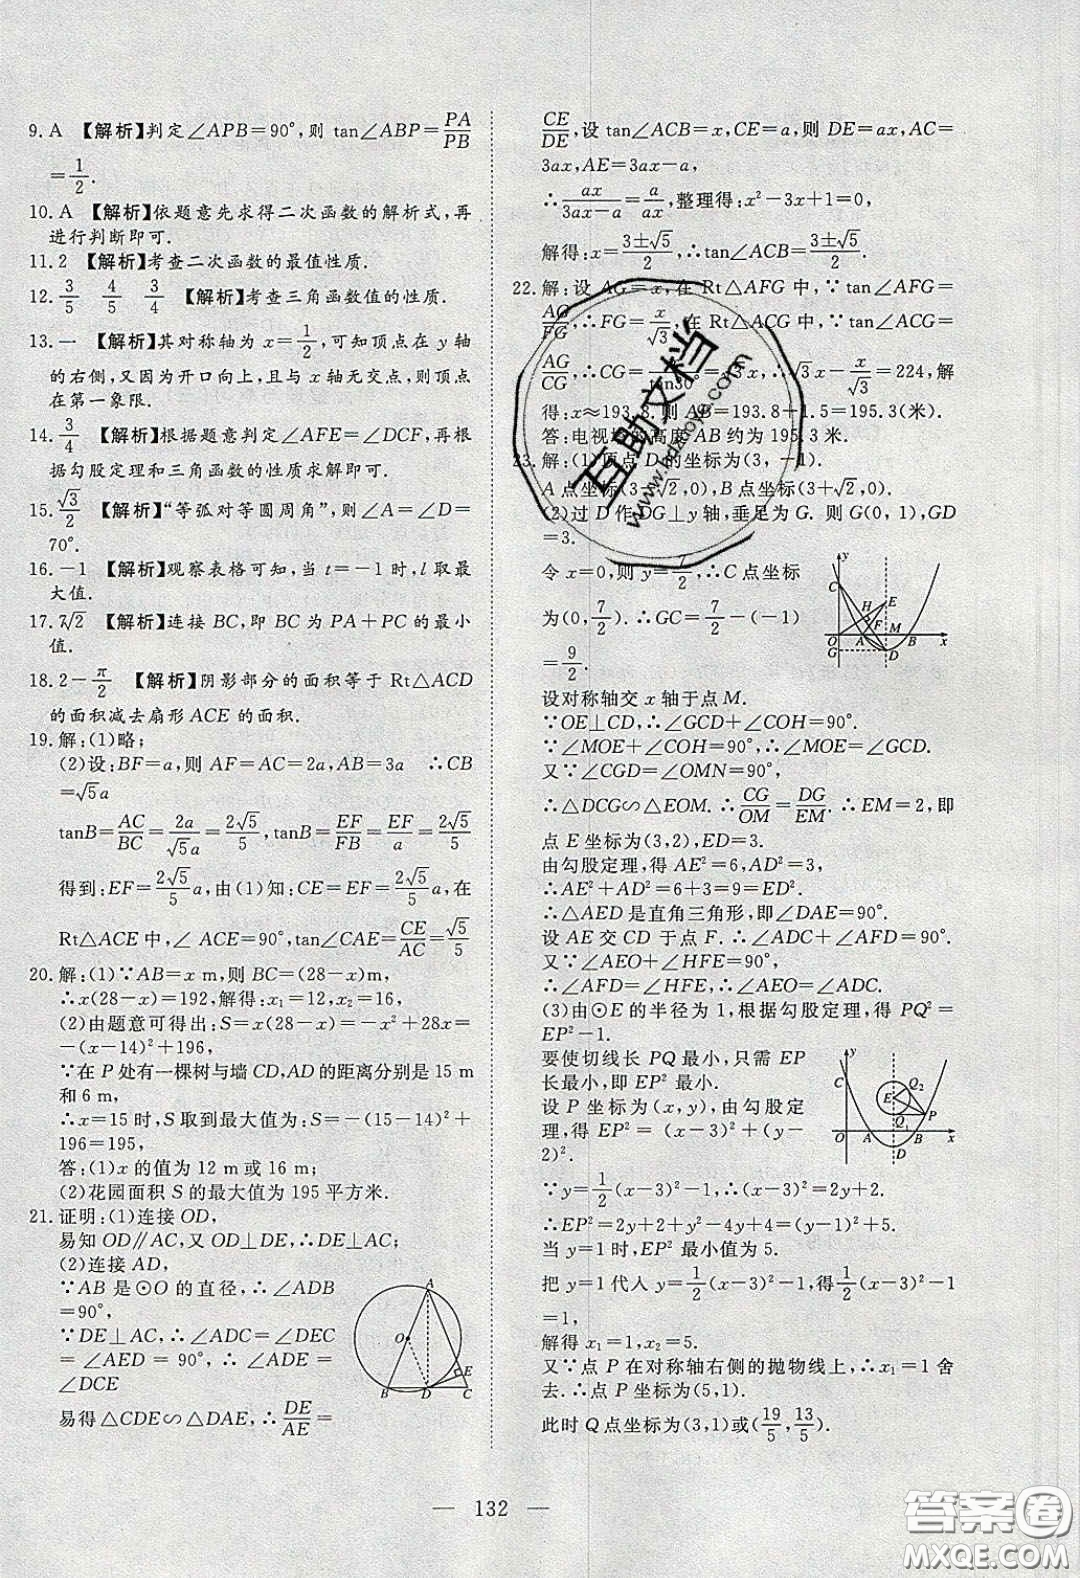 9. A 【解析】判定∠APB=90°,则 tan∠ABP=PA/PB
=1/2.
10. A 【解析】依题意先求得二次函数的解析式,再
进行判断即可.
11. 2 【解析】考查二次函数的最值性质.
12. 3/5 4/5 3/4 【解析】考查三角函数值的性质.
13. 一 【解析】其对称轴为 x=1/2,可知顶点在 y 轴
的右侧,又因为开口向上,且与 x 轴无交点,则顶点
在第一象限.
14. 3/4 【解析】根据题意判定∠AFE=∠DCF,再根
据勾股定理和三角函数的性质求解即可.
15. √3/2 【解析】“等弧对等圆周角”,则∠A=∠D=
70°.
16. -1 【解析】观察表格可知,当 t=-1 时,l 取最
大值.
17. 7√2 【解析】连接 BC,即 BC 为 PA+PC 的最小
值.
18. 2-π/2 【解析】阴影部分的面积等于 Rt△ACD
的面积减去扇形 ACE 的面积.
19. 解:(1)略;
(2)设:BF=a,则 AF=AC=2a,AB=3a ∴CB
=√5a
tanB=AC/BC=2a/√5a=2√5/5,tanB=EF/FB=EF/a=2√5/5
得到:EF=2√5/5a,由(1)知:CE=EF=2√5/5a,在
Rt△ACE 中,∠ ACE=90°,tan∠CAE=CE/AC=√5/5
20. 解:(1)∵AB=x m,则 BC=(28-x)m,
∴x(28-x)=192,解得:x₁=12,x₂=16,
(2)由题意可得出:S=x(28-x)=-x²+28x=
-(x-14)²+196,
∵在 P 处有一棵树与墙 CD,AD 的距离分别是 15 m
和 6 m,
∴x=15 时,S 取到最大值为:S=-(15-14)²+
196=195,
答:(1)x 的值为 12 m 或 16 m;
(2)花园面积 S 的最大值为 195 平方米.
21. 证明:(1)连接 OD,
易知 OD∥AC,又 OD⊥DE,∴DE⊥AC;
(2)连接 AD,
∵AB 是⊙O 的直径,∴∠ADB
=90°,
∵DE⊥AC,∴∠ADC=∠DEC
=∠AED = 90°,∴∠ADE
=∠DCE
易得△CDE∽△DAE,∴DE/AE=
A
O
E
B
D
C
CE/DE,设 tan∠ACB=x,CE=a,则 DE=ax,AC=
3ax,AE=3ax-a,
∴ax/(3ax-a)=a/ax,整理得:x²-3x+1=0,
解得:x=(3±√5)/2,∴tan∠ACB=(3±√5)/2.
22. 解:设 AG=x,在 Rt△AFG 中,∵tan∠AFG=
AG/FG,∴FG=x/√3,在 Rt△ACG 中,∵tan∠ACG=
AG/CG,∴CG=x/tan30°=√3x,∴√3x-x/√3=224,解
得:x≈193.8.则 AB=193.8+1.5=195.3(米).
答:电视塔的高度 AB 约为 195.3 米.
23. 解:(1)顶点 D 的坐标为(3,-1).
A 点坐标(3-√2,0),B 点坐标(3+√2,0).
(2)过 D 作 DG⊥y 轴,垂足为 G. 则 G(0,1),GD
=3.
令 x=0,则 y=7/2,∴C 点坐标
为(0,7/2).∴GC=7/2-(-1)
=9/2.
y
C
H
E
F
M
O
A
B
x
G
D
设对称轴交 x 轴于点 M.
∵OE⊥CD,∴∠GCD+∠COH=90°.
∵∠MOE+∠COH=90°,∴∠MOE=∠GCD.
又∵∠CGD=∠OMN=90°,
∴△DCG∽△EOM.∴CG/OM=DG/EM.∴EM=2,即
点 E 坐标为(3,2),ED=3.
由勾股定理,得 AE²=6,AD²=3,
∴AE²+AD²=6+3=9=ED².
∴△AED 是直角三角形,即∠DAE=90°.
设 AE 交 CD 于点 F.∴∠ADC+∠AFD=90°.
又∵∠AEO+∠HFE=90°,
∴∠AFD=∠HFE,∴∠AEO=∠ADC.
(3)由⊙E 的半径为 1,根据勾股定理,得 PQ²=
EP²-1.
要使切线长 PQ 最小,只需 EP
长最小,即 EP² 最小.
设 P 坐标为(x,y),由勾股定
理,得 EP²=(x-3)²+(y-
2)².
y
C
E
Q₂
Q₁
P
A
B
x
D
∵y=1/2(x-3)²-1,∴(x-3)²=2y+2.
∴EP²=2y+2+y²-4y+4=(y-1)²+5.
当 y=1 时,EP² 最小值为 5.
把 y=1 代入 y=1/2(x-3)²-1,得1/2(x-3)²-1
=1,
解得 x₁=1,x₂=5.
又∵点 P 在对称轴右侧的抛物线上,∴x₁=1 舍
去.∴点 P 坐标为(5,1).
此时 Q 点坐标为(3,1)或(19/5,13/5).
— 132 —
互助文档
www.hdzuoye.com
答案圈
MXQE.COM